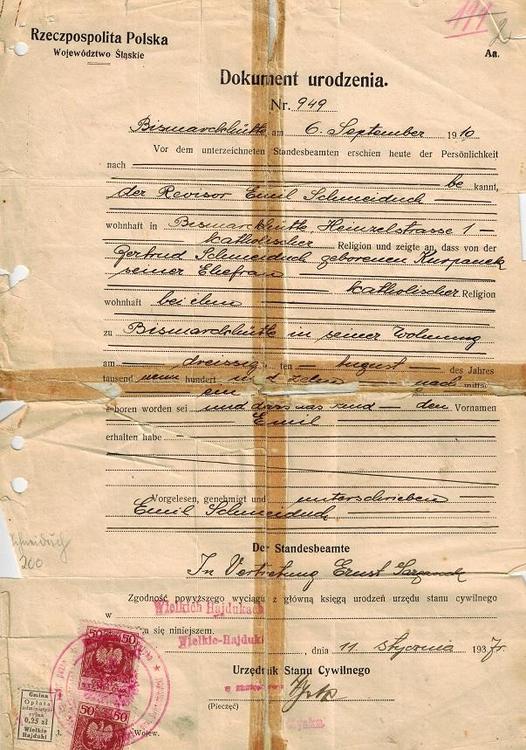 Rzeczpospolita Polska
Województwo Śląskie
Aa.
Dokument urodzenia.
Nr. 949
Bismarckhütte, am 6. September 1910
Vor dem unterzeichneten Standesbeamten erschien heute der Persönlichkeit
nach
be kannt,
der Revisor Emil Schmeiduch
wohnhaft in Bismarckhütte, Heinzelstrasse 1
katholischer Religion und zeigte an, dass von der
Gertrud Schmeiduch geborenen Kurpanek
seiner Ehefrau
katholischer Religion
wohnhaft bei ihm
zu Bismarckhütte in seiner Wohnung
am dreissig ten August des Jahres
tausend neun hundert und zehn nach mittag
ein
geboren worden sei und dass das Kind den Vornamen
Emil
erhalten habe
Vorgelesen, genehmigt und unterschrieben
Emil Schmeiduch
Der Standesbeamte
In Vertretung Ernst
Zgodność powyższego wyciągu z główną księgą urodzeń urzędu stanu cywilnego
w Wielkich Hajdukach
się niniejszem.
Wielkie-Hajduki, dnia 11 stycznia 1937r.
Urzędnik Stanu Cywilnego
w
(Pieczęć)
50 50
50 50
Gmina
Opłata
0,25 zł
Wielkie
Hajduki
Wojew.
200